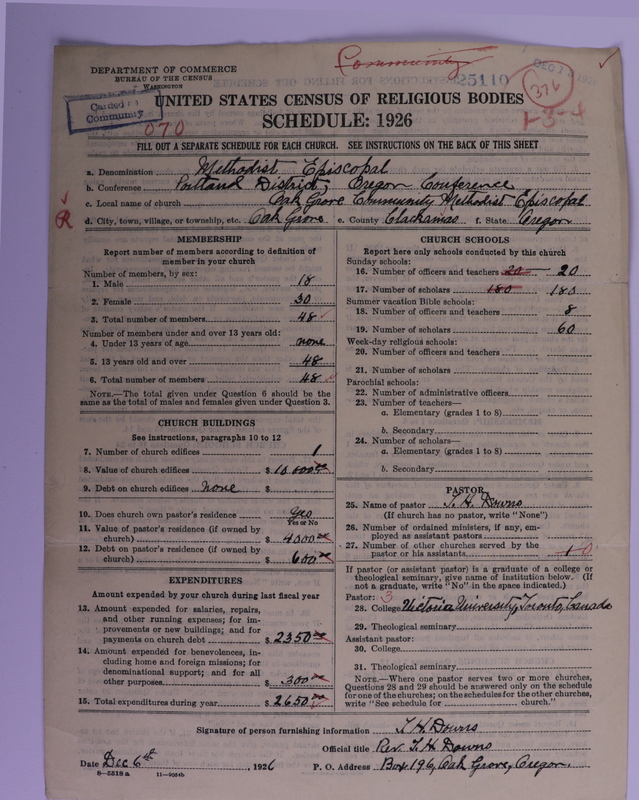 Community
DEPARTMENT OF COMMERCE
BUREAU OF THE CENSUS
WASHINGTON
25110
376
1-3-4
Carded as
Community
070
UNITED STATES CENSUS OF RELIGIOUS BODIES
SCHEDULE: 1926
FILL OUT A SEPARATE SCHEDULE FOR EACH CHURCH. SEE INSTRUCTIONS ON THE BACK OF THIS SHEET
a. Denomination Methodist Episcopal
b. Conference Portland District, Oregon Conference
c. Local name of church Oak Grove Community Methodist Episcopal
R
d. City, town, village, or township, etc. Oak Grove e. County Clackamas f. State Oregon
MEMBERSHIP
Report number of members according to definition of
member in your church
Number of members, by sex:
1. Male 18
2. Female 30
3. Total number of members 48
Number of members under and over 13 years old:
4. Under 13 years of age none
5. 13 years old and over 48
6. Total number of members 48
NOTE.—The total given under Question 6 should be the
same as the total of males and females given under Question 3.
CHURCH BUILDINGS
See instructions, paragraphs 10 to 12
7. Number of church edifices 1
8. Value of church edifices $ 10,000
9. Debt on church edifices none $
10. Does church own pastor's residence Yes
Yes or No
11. Value of pastor's residence (if owned by
church) $ 4000
12. Debt on pastor's residence (if owned by
church) $ 600
EXPENDITURES
Amount expended by your church during last fiscal year
13. Amount expended for salaries, repairs,
and other running expenses; for im-
provements or new buildings; and for
payments on church debt $ 2350
14. Amount expended for benevolences, in-
cluding home and foreign missions; for
denominational support; and for all
other purposes $ 300
15. Total expenditures during year $ 2650
CHURCH SCHOOLS
Report here only schools conducted by this church
Sunday schools:
16. Number of officers and teachers 20 20
17. Number of scholars 180 180
Summer vacation Bible schools:
18. Number of officers and teachers 8
19. Number of scholars 60
Week-day religious schools:
20. Number of officers and teachers
21. Number of scholars
Parochial schools:
22. Number of administrative officers
23. Number of teachers—
a. Elementary (grades 1 to 8)
b. Secondary
24. Number of scholars—
a. Elementary (grades 1 to 8)
b. Secondary
PASTOR
25. Name of pastor T. H. Downs
(If church has no pastor, write "None")
26. Number of ordained ministers, if any, em-
ployed as assistant pastors
27. Number of other churches served by the
pastor or his assistants 1 0
If pastor (or assistant pastor) is a graduate of a college or
theological seminary, give name of institution below. (If
not a graduate, write "No" in the space indicated.)
Pastor: 3
28. College Victoria University, Toronto, Canada
29. Theological seminary
Assistant pastor:
30. College
31. Theological seminary
NOTE.—Where one pastor serves two or more churches,
Questions 28 and 29 should be answered only on the schedule
for one of the churches; on the schedules for the other churches,
write "See schedule for church."
Signature of person furnishing information T. H. Downs
Official title Rev. T. H. Downs
Date Dec 6th, 1926 P. O. Address Box 196, Oak Grove, Oregon.
8-5518a 11-9054b